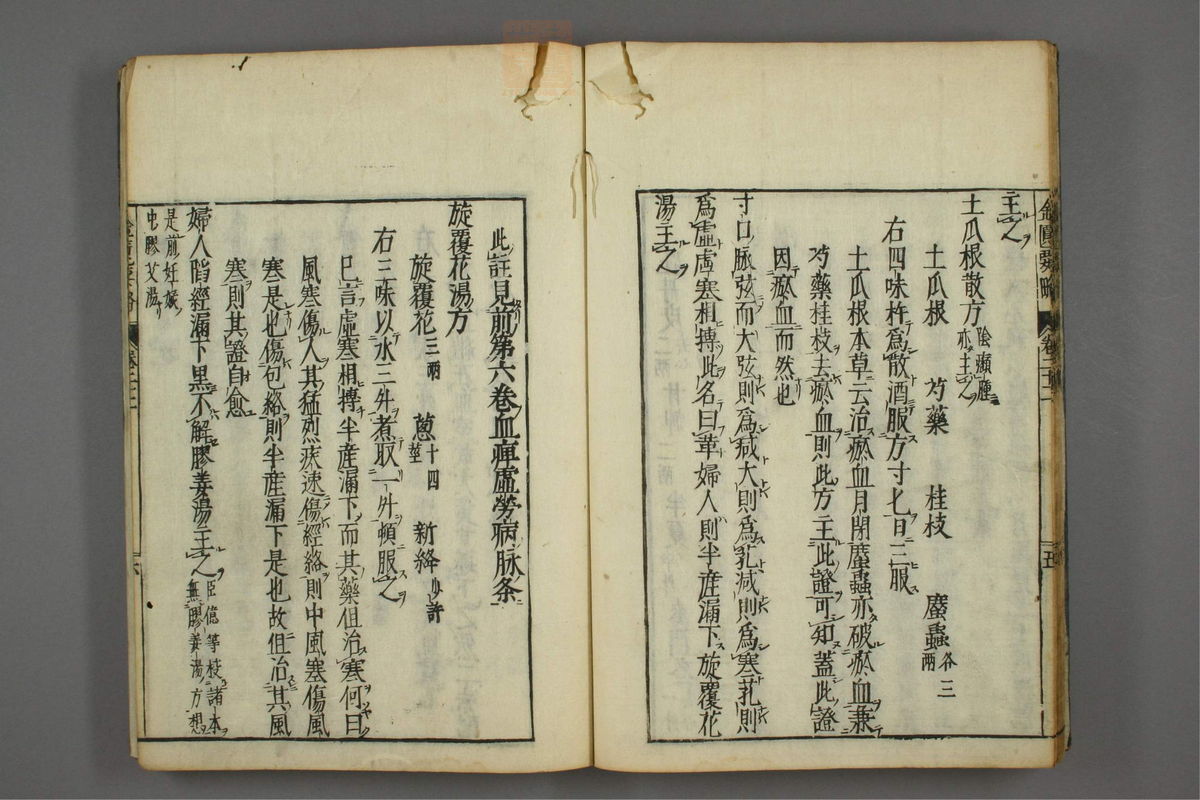 主之
土瓜根散方 陰㿗腫亦主之
土瓜根 芍藥 桂枝 䗪蟲各三兩
右四味杵爲散酒服方寸匕日三服
土瓜根本草云治瘀血月閉䗪蟲亦破瘀血兼
芍藥桂枝去瘀血則此方主此證可知蓋此證
因瘀血而然也
寸口脉弦而大弦則爲減大則爲芤減則爲寒芤則
爲虛虛寒相摶此名曰革婦人則半産漏下旋覆花
湯主之
此註見前第六卷血痺虛勞病脉条
旋覆花湯方
旋覆花三兩 蔥十四莖 新絳少許
右三味以水三升煮取一升頓服之
已言虛寒相摶半産漏下而其藥但治寒何曰
風寒傷人其猛烈疾速傷經絡則中風寒傷風
寒是也傷包絡則半産漏下是也故但治其風
寒則其證自愈
婦人陷經漏下黑不解膠姜湯主之 臣億等校諸本無膠姜湯方想
是前妊娠中膠艾湯